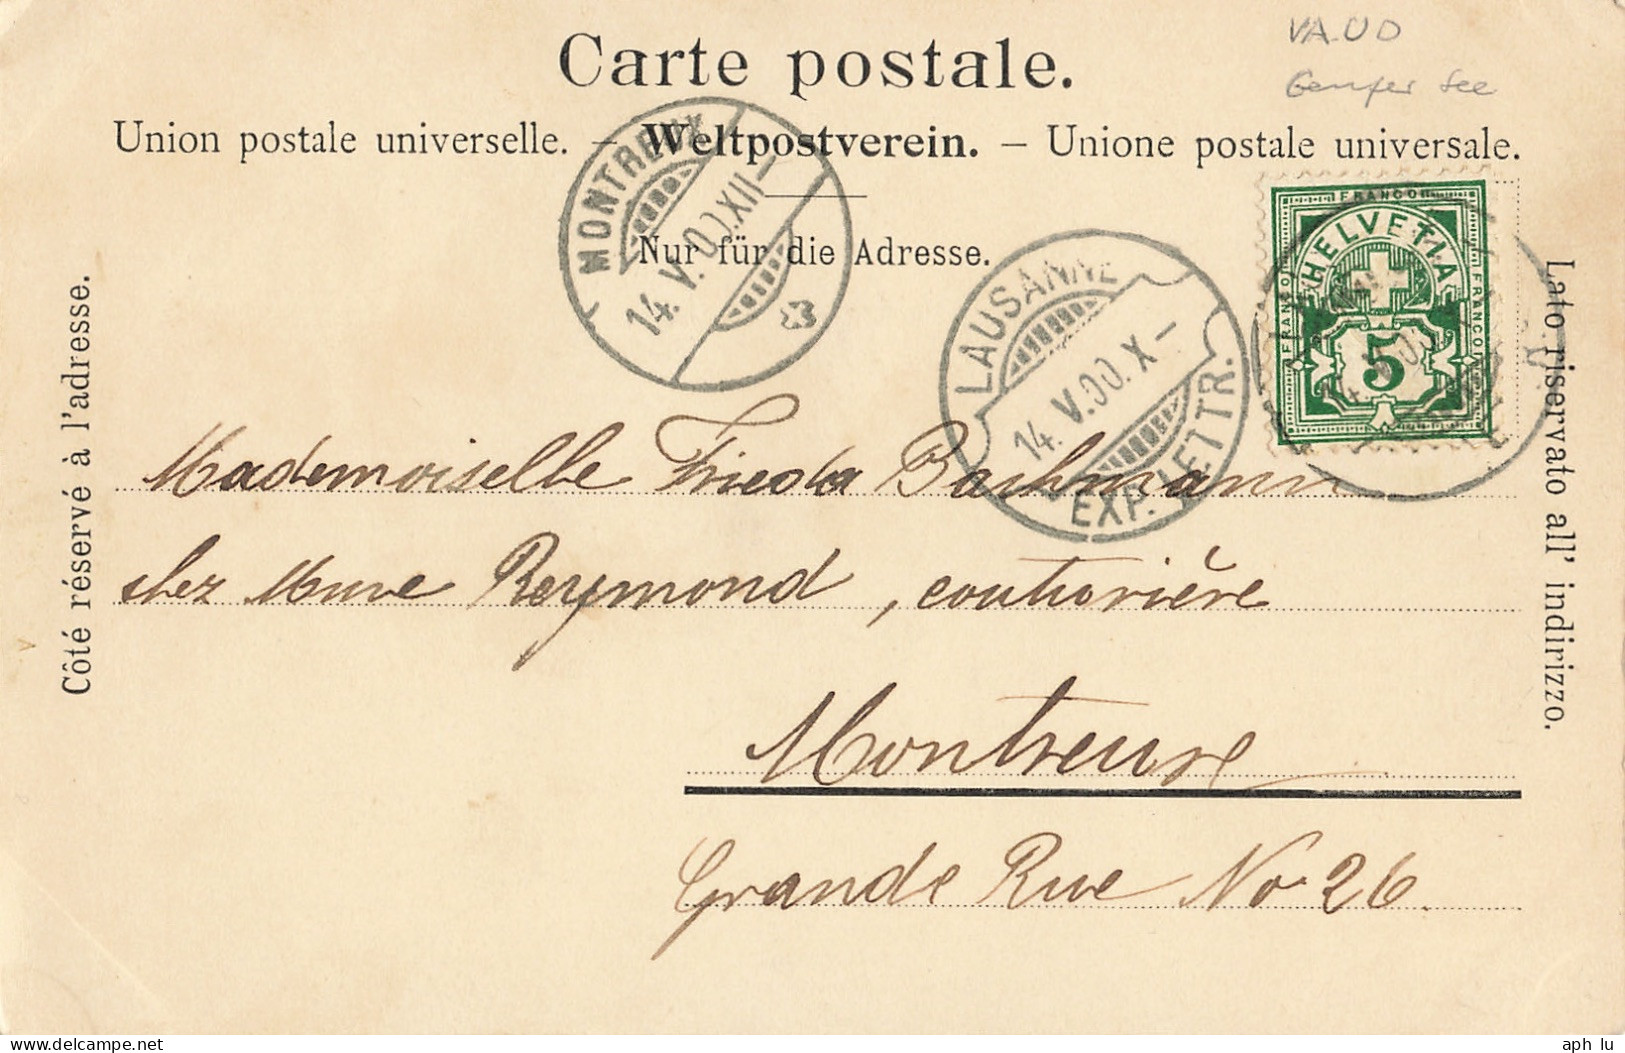 VAUD
Genfer See
Carte postale.
Union postale universelle. – Weltpostverein. – Unione postale universale.
Nur für die Adresse.
Côté réservé à l'adresse.
Lato riservato all' indirizzo.
MONTREUX
14.V.00.XII–
LAUSANNE
14.V.00.X–
EXP. LETTR.
FRANCO
HELVETIA
FRANCO
FRANCO
5
Mademoiselle Frieda Bachmann
chez Mme Reymond, couturière
Montreux
Grande Rue No 26.
aph lu